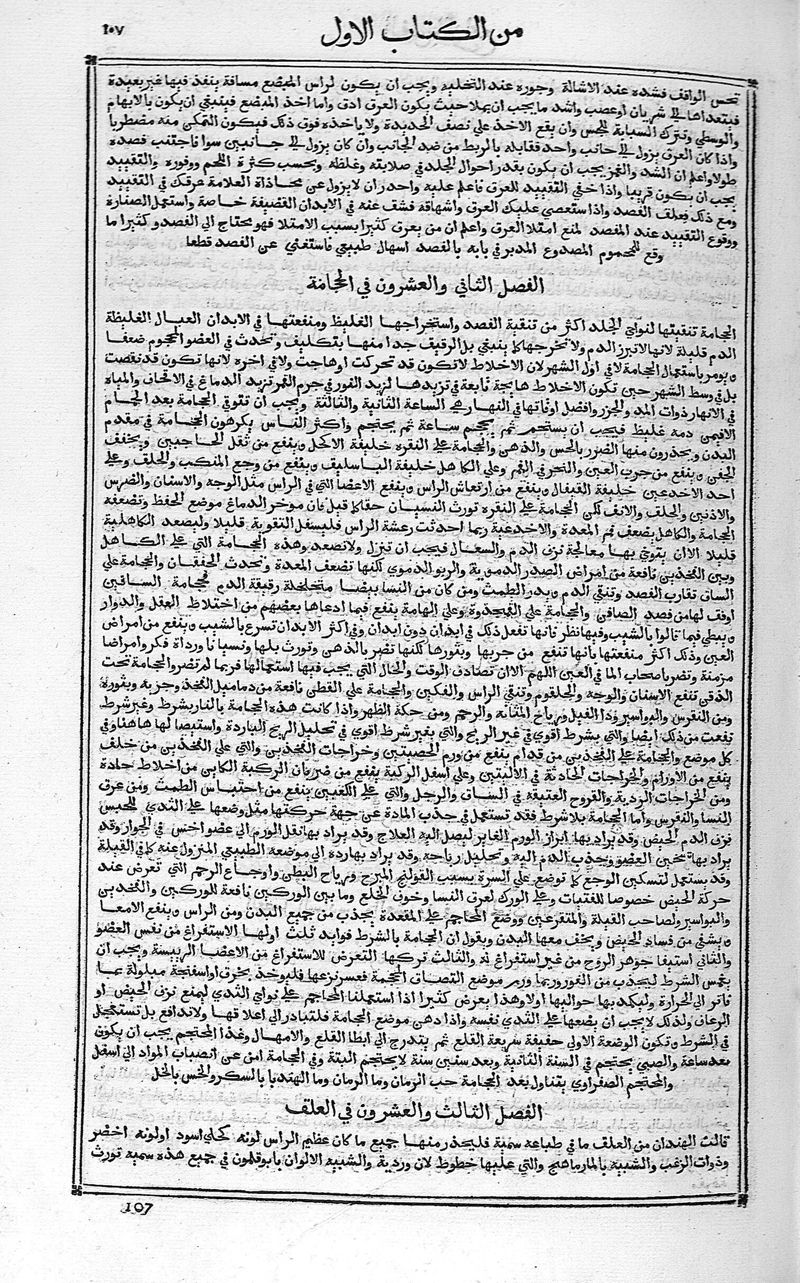 ١٠٧
من الكتاب الاول
تحس الواقف فشده عند الاشالة وجوره عند التخليه ويجب ان يكون لراس المبضع مسافة ينفذ فيها غير بعيدة
فيتعداها الي شريان او عصب واشد ما يجب ان يملا حيث يكون العرق ادق واما اخذ المبضع فينبغي ان يكون بالابهام
والوسطي وتترك السبابة للجس وان يقع الاخذ علي نصف الحديدة ولا ياخذه فوق ذلك فيكون التمكن منه مضطربا
واذا كان العرق يزول الي جانب واحد فقابله بالربط من ضد الجانب وان كان يزول الي جانبين سوا فاجتنب فصده
طولا واعلم ان الشد والغمز يجب ان يكون بقدر احوال الجلد في صلابته وغلظه وبحسب كثرة اللحم ووفوره والتقييد
يجب ان يكون قريبا واذا خفي التقييد للعرق فاعلم عليه واحذر ان لا يزول عن محاذاة العلامة عرقك في التقييد
ومع ذلك فعلق الفصد واذا ستعصي عليك العرق واشهاقه فشف عنه في الابدان القضيفة خاصة واستعمل الصنارة
ووقوع التقييد عند المفصد لمنع امتلا العرق واعلم ان من يعرق كثيرا بسبب الامتلا فهو محتاج الي الفصد وكثيرا ما
وقع للمحموم المصدوع المدبر في بابه بالفصد اسهال طبيعي فاستغني عن الفصد قطعا
الفصل الثاني والعشرون في الحجامة
الحجامة تنقيتها لنواحي الجلد اكثر من تنقية الفصد واستخراجها للدم الرقيق اكثر
الدم قليلة لانها لا تبرز الدم ولا تخرجها كما ينبغي بل الرقيق جدا منها بتكليف وتحدث في العضو المحجوم ضعفا
ويومر باستعمال الحجامة لا في اول الشهر لان الاخلاط لا تكون قد تحركت او هاجت ولا في اخره لانها تكون قد نقصت
بل في وسط الشهر حين تكون الاخلاط هايجة تابعة في تزيدها لتزيد النور في جرم القمر تزيد الدماغ في الاقحاف والمياه
في الانهار ذوات المد والجزر وافضل اوقاتها في النهار هي الساعة الثانية والثالثة ويجب ان تتوقي الحجامة بعد الحمام
الا فيمن دمه غليظ فيجب ان يستحم ثم يجم ساعة ثم يحتجم واكثر الناس يكرهون الحجامة في مقدم
البدن ويحذرون منها الضرر بالحس والذهن والحجامة علي النقره خليفة الاكحل وينفع من ثقل الحاجبين ويخفف
الجفن وينفع من جرب العين والبخر في الفم وعلي الكاهل خليفة الباسليق وينفع من وجع المنكب والحلق وعلي
احد الاخدعين خليفة القيفال وينفع من ارتعاش الراس وينفع الاعضا التي في الراس مثل الوجه والاسنان والضرس
والاذنين والحلق والانف لكن الحجامة علي النقره تورث النسيان حقا كما قيل فان موخر الدماغ موضع الحفظ وتضعفه
الحجامة والكاهل يضعف فم المعدة والاخدعية ربما احدثت رعشة الراس فليسفل النقرية قليلا وليصعد الكاهلية
قليلا الا ان يتوخي بها معالجة نزف الدم والسعال فيجب ان تنزل ولا تصعد وهذه الحجامة التي علي الكاهل
وبين الفخذين نافعة من امراض الصدر الدموية والربو الدموي لكنها تضعف المعدة وتحدث الخفقان والحجامة علي
الساق تقارب الفصد وتنقي الدم ويدر الطمث ومن كان من النسا بيضا متخلخلة رقيقة الدم فحجامة الساقين
اوفق لها من فصد الصافن والحجامة علي القمحدوة وعلي الهامة ينفع فيما ادعاه بعضهم من اختلاط العقل والدوار
ويبطي فيما قالوا بالشيب وفيها نظر فانها تفعل ذلك في ابدان دون ابدان وفي اكثر الابدان تسرع بالشيب وينفع من امراض
العين وذلك اكثر منفعتها فانها تنفع من جربها وبثورها لكنها تضر بالذهن وتورث بلها ونسيانا ورداة فكر وامراضا
مزمنة وتضر باصحاب الما في العين اللهم الا ان تصادف الوقت والحال التي يجب فيها استعمالها فربما لم تضر والحجامة تحت
الذقن تنفع الاسنان والوجه والحلقوم وتنقي الراس والفكين والحجامة علي القطن نافعة من دماميل الفخذ وجربه وبثوره
ومن النقرس والبواسير ودا الفيل ورياح المثانه والرحم ومن حكة الظهر واذا كانت هذه الحجامة بالنار بشرط وغير شرط
نفعت من ذلك ايضا والتي بشرط اقوي في غير الريح والتي بغير شرط اقوي في تحليل الريح الباردة واستيصالها هاهنا وفي
كل موضع والحجامة علي الفخذين من قدام ينفع من ورم الخصيتين وخراجات الفخذين والتي علي الفخذين من خلف
ينفع من الاورام والخراجات الحادثة في الاليتين وعلي اسفل الركبة ينفع من ضربان الركبة الكاين من اخلاط حادة
ومن الخراجات الردية والقروح العتيقة في الساق والرجل والتي علي الكعبين ينفع من احتباس الطمث ومن عرق
النسا والنقرس واما الحجامة بلا شرط فقد تستعمل في جذب المادة عن جهة حركتها مثل وضعها علي الثدي لحبس
نزف الدم الحيض وقد يراد بها ابراز الورم الغاير ليصل اليه العلاج وقد يراد بها نقل الورم الي عضو اخس في الجوار وقد
يراد بها تسخين العضو ويجذب الدم اليه وتحليل رياحه وقد يراد بها رده الي موضعه الطبيعي المنزول عنه كما في القيلة
وقد يستعمل لتسكين الوجع كما توضع علي السرة بسبب القولنج المبرح ورياح البطن واوجاع الرحم التي تعرض عند
حركة الحيض خصوصا للفتيات وعلي الورك لعرق النسا وخوف الخلع وما بين الوركين نافعة للوركين والفخذين
والبواسير ولصاحب القيلة والمنقرسين ووضع المحاجم علي المقعدة يجذب من جميع البدن ومن الراس وينفع الامعا
ويشفي من فساد الحيض ويخف معها البدن ويقول ان الحجامة بالشرط فوايد ثلث اولها الاستفراغ من نفس العضو
والثاني استبقا جوهر الروح من غير استفراغ له والثالث تركها التعرض للاستفراغ من الاعضا الرييسة ويجب ان
يعمق الشرط ليجذب من الغور وربما ورم موضع التصاق المحجمة فعسر نزعها فليوخذ بخرق او اسفنجة مبلولة بما
فاتر الي الحرارة وليكمد بها حواليها اولا وهذا يعرض كثيرا اذا استعملنا المحاجم علي نواحي الثدي ليمنع نزف الحيض او
الرعاف ولذلك لا يجب ان يضعها علي الثدي نفسه واذا دهن موضع الحجامة فلتبادر الي اعلاقها ولا تدافع بل تستعجل
في الشرط وتكون الوضعة الاولي خفيفة سريعة القلع ثم يتدرج الي ابطا القلع والامهال وغذا المحتجم يجب ان يكون
بعد ساعة والصبي يحتجم في السنة الثانية وبعد ستين سنة لا يحتجم البتة وفي الحجامة امن عن انصباب المواد الي اسفل
والمحتجم الصفراوي يتناول بعد الحجامة حب الرمان وما الرمان وما الهندبا بالسكر والخس بالخل
الفصل الثالث والعشرون في العلق
قالت الهند ان من العلق ما في طباعه سمية فليحذر منها جميع ما كان عظيم الراس لونه كحلي اسود او لونه اخضر
وذوات الزغب والشبيه بالمارماهج والتي عليها خطوط لازوردية والشبيه الالوان بابوقلمون في جميع هذه سمية تورث
107